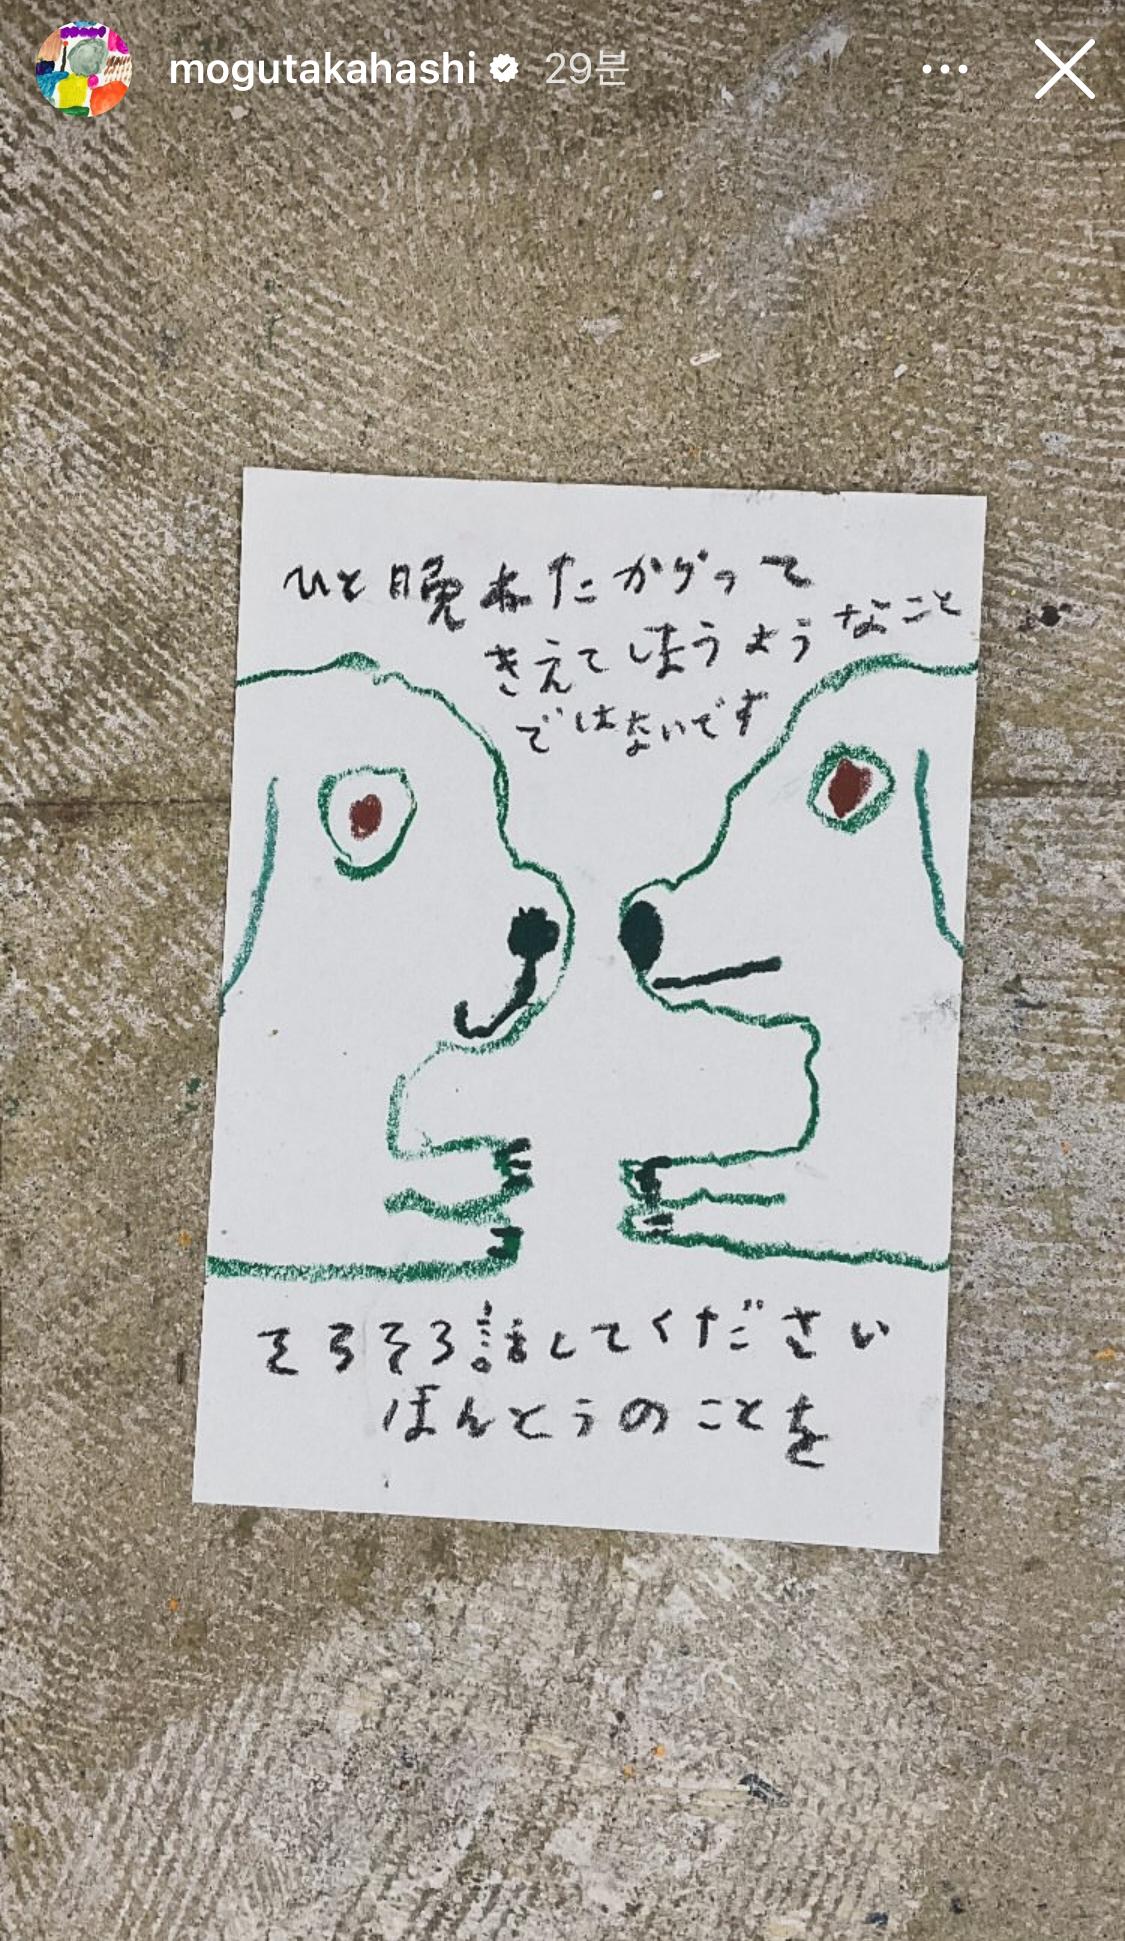 mogutakahashi 29분
ひと晩ねたからって
きえてしまうようなこと
ではないです
そろそろ話してください
ほんとうのことを